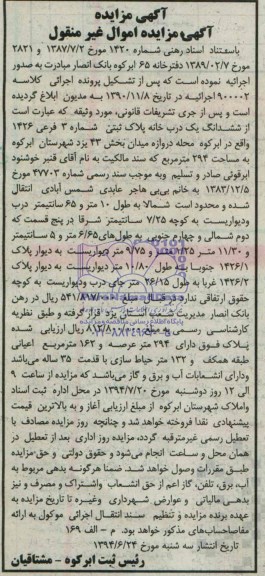 آگهی مزایده
آگهی مزایده اموال غیر منقول
باستناد اسناد رهنی شماره ۱۴۲۰ مورخ ۱۳۸۷/۷/۲ و ۲۸۲۱
مورخ ۱۳۸۹/۰۲/۷ دفترخانه ۶۵ ابرکوه بانک انصار مبادرت به صدور
اجرائیه نموده است که پس از تشکیل پرونده اجرائی کلاسه
۹۰۰۰۰۲ اجرائیه در تاریخ ۱۳۹۰/۱۱/۸ به مدیون ابلاغ گردیده
است و پس از جری تشریفات قانونی، مورد وثیقه که عبارت است
از ششدانگ یک درب خانه پلاک ثبتی شماره ۳ فرعی ۱۴۲۶
واقع در ابرکوه محله دروازه میدان بخش ۴۳ یزد شهرستان ابرکوه
به مساحت ۲۹۴ مترمربع که سند مالکیت به نام آقای قنبر خوشنود
ابرقوئی صادر و تسلیم و به موجب سند رسمی شماره ۴۷۷۰۳ مورخ
۱۳۸۳/۱۲/۵ به خانم بی بی هاجر عابدی شمس آبادی انتقال
شده و محدود است شمالا به طول ۱۰ متر و ۶۵ سانتیمتر درب
و دیواریست به کوچه ۷/۲۵ سانتیمتر شرقا در پنج قسمت که
دوم شمالی و چهارم جنوبی به طول های ۶/۶۵ متر و ۵ سانتیمتر
و ۱۱/۳۰ متر ۱/۲۵ متر و ۹/۷۵ متر دیواریست به دیوار پلاک
۱۴۲۶/۱ جنوبا به طول ۱۰/۸۰ متر دیواریست به دیوار پلاک
۱۴۲۶/۲ غربا به طول ۲۶/۱۵ متر جای درب و دیواریست به کوچه
حقوق ارتفاقی ندارد در قبال مبلغ ریال در رهن
بانک انصار مدیریت استان یزد قرار گرفته و طبق نظریه
کارشناسی رسمی به مبلغ ریال ارزیابی شده
پلاک فوق دارای ۲۹۴ متر عرصه و ۱۶۲ مترمربع اعیانی
طبقه همکف و ۱۳۲ متر حیاط سازی با قدمت ۳۵ ساله می باشد
و دارای انشعابات آب و برق و گاز می باشد که مزایده از ساعت ۹
الی ۱۲ روز دوشنبه مورخ ۱۳۹۴/۷/۲۰ در محل اداره ثبت اسناد
و املاک شهرستان ابرکوه از مبلغ ارزیابی آغاز و به بالاترین قیمت
پیشنهادی نقدا فروخته خواهد شد و چنانچه روز مزایده مصادف با
تعطیل رسمی غیرمترقبه گردد، مزایده روز اداری بعد از تعطیل در
همان محل و ساعت انجام می شود و حقوق دولتی و حق مزایده
طبق مقررات وصول خواهد شد. ضمنا هرگونه بدهی مربوط به
آب، برق، تلفن، گاز اعم از حق انشعاب و اشتراک و مصرف و نیز
بدهی مالیاتی و عوارض شهرداری وغیره تا تاریخ مزایده به
عهده برنده مزایده و تنظیم سند انتقال اجرائی موکول به ارائه
مفاصاحساب های مذکور خواهد بود. م - الف ۱۶۹
تاریخ انتشار سه شنبه مورخ ۱۳۹۴/۶/۲۴
رئیس ثبت ابرکوه - مشتاقیان